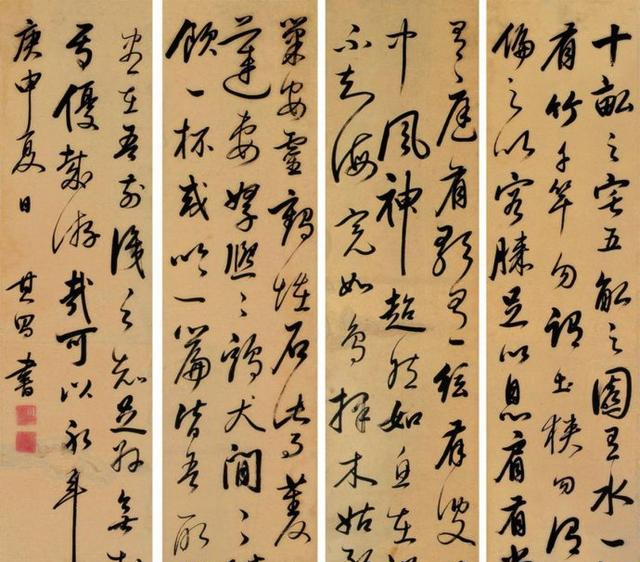 十畝之宅五畝之園有水一
有竹千竿勿謂土狹勿謂
偏足以容膝足以息肩有堂
有庭有歌有絃有叟
中風神超然如魚在
不知海寬如鳥擇木姑務
巢安靈鶴怪石紫菱
蓮妻孥熙〻鷄犬閒〻
飲一杯或吟一篇皆吾所
盡在吾前識分知足外無求
焉優哉游哉可以永年
庚申夏日 其昌書